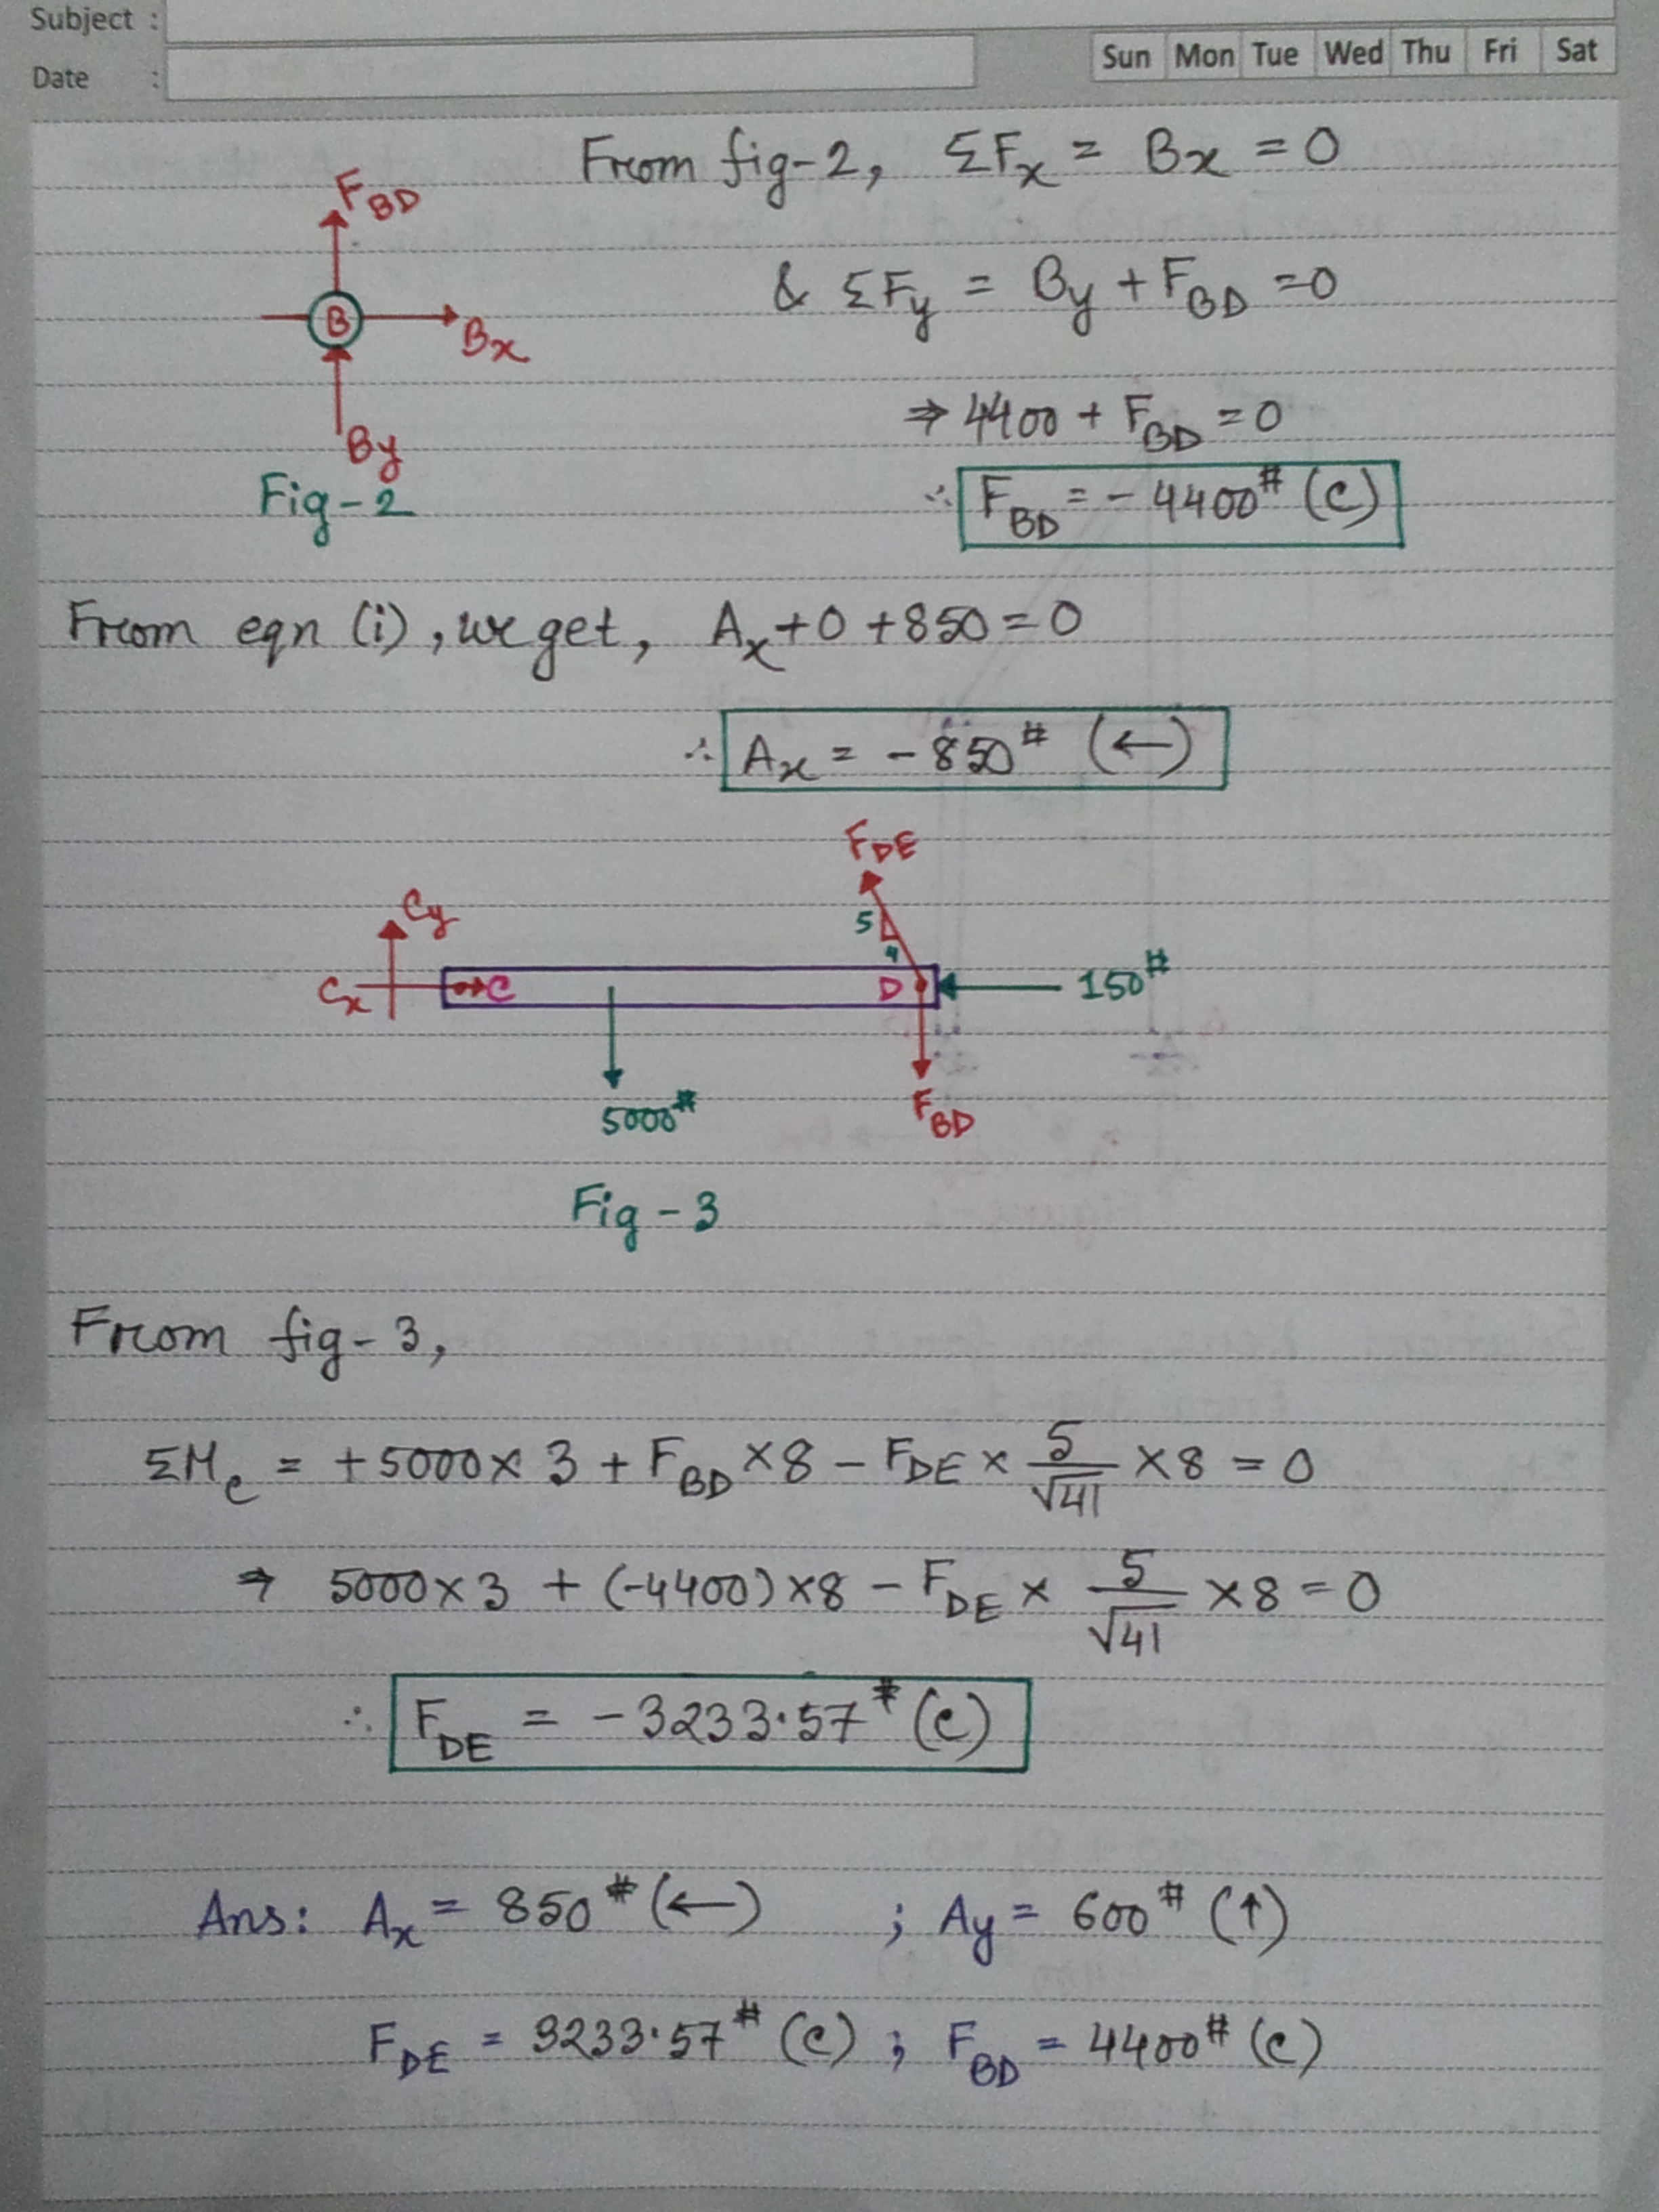 Subject :
Date :
Sun Mon Tue Wed Thu Fri Sat
From fig-2, ΣFx = Bx = 0
F_BD
& ΣFy = By + F_BD = 0
B
Bx
⇒ 4400 + F_BD = 0
By
Fig-2
∴ F_BD = - 4400# (C)
From eqn (i), we get, Ax + 0 + 850 = 0
∴ Ax = - 850# (←)
F_DE
Cy
5
4
Cx
C
D
150#
5000#
F_BD
Fig - 3
From fig-3,
ΣM_c = + 5000 × 3 + F_BD × 8 - F_DE × 5/√41 × 8 = 0
⇒ 5000 × 3 + (-4400) × 8 - F_DE × 5/√41 × 8 = 0
∴ F_DE = - 3233.57# (C)
Ans: Ax = 850# (←) ; Ay = 600# (↑)
F_DE = 3233.57# (C) ; F_BD = 4400# (C)